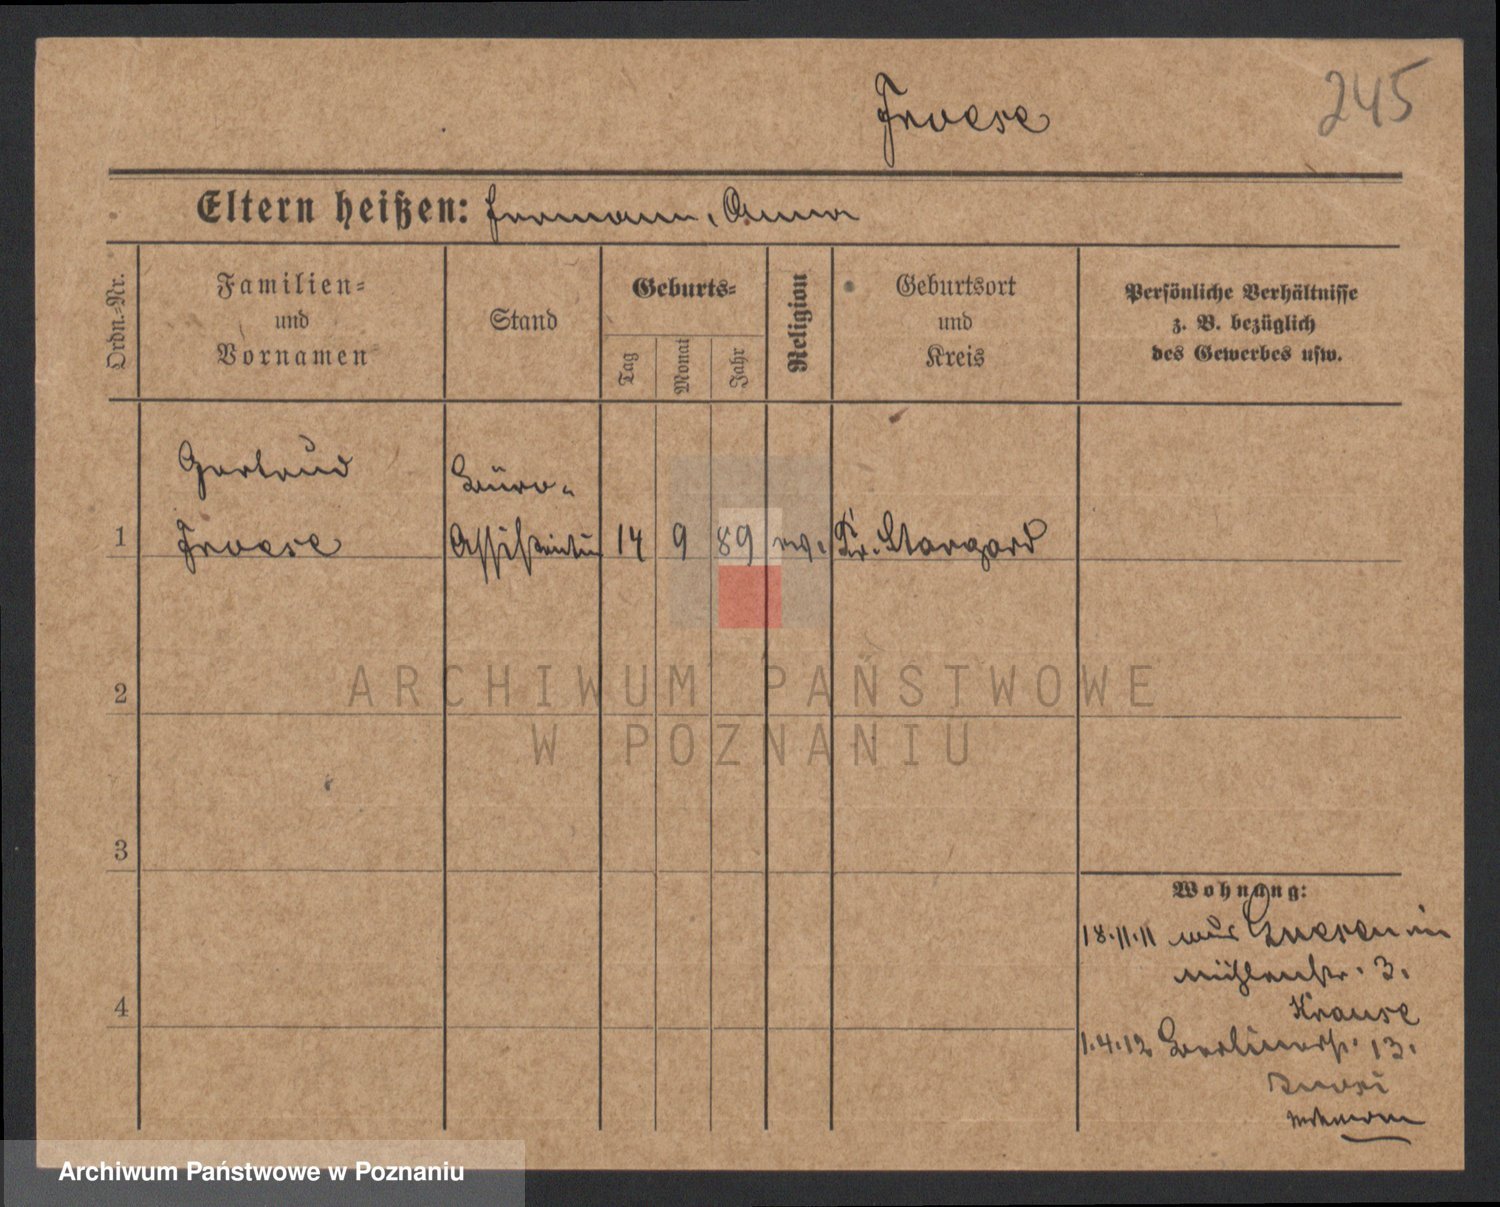 Froese
245
Eltern heißen: Hermann, Anna
Ordn.-Nr.
Familien-
und
Vornamen
Stand
Geburts-
Tag
Monat
Jahr
Religion
Geburtsort
und
Kreis
Persönliche Verhältnisse
z. B. bezüglich
des Gewerbes usw.
Gertrud
Büro-
1 Froese Assistentin 14 9 89 ev. Kr. Stargard
2
3
4
Wohnung:
18.11.11 aus Gnesen in
Mühlenstr. 3.
Krause
1.4.12 Berlinerstr. 13.
ARCHIWUM PAŃSTWOWE
W POZNANIU
Archiwum Państwowe w Poznaniu